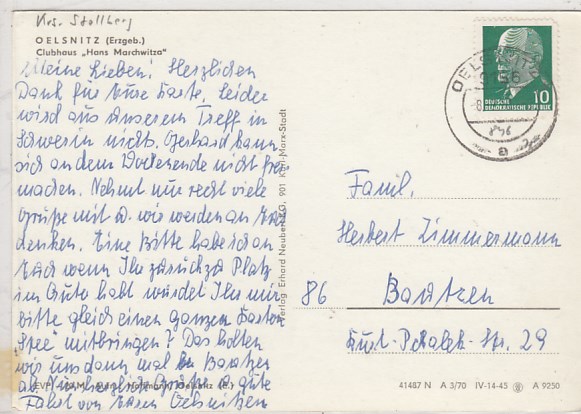 Krs. Stollberg
OELSNITZ (Erzgeb.)
Clubhaus „Hans Marchwitza"
Meine Lieben! Herzlichen
Dank für Eure Karte, leider
wird aus unserem Treff in
Schwerin nichts. Gerhard kann
sich an dem Wochenende nicht frei
machen. Nehmt nur recht viele
Grüße mit u. wir werden an Euch
denken. Eine Bitte habe ich an
Euch wenn Ihr zurückzu Platz
im Auto habt würdet Ihr mir
bitte gleich einen ganzen Karton
Spee mitbringen? Das holten
wir uns dann mal in Bautzen
ab. Nun herzliche Grüße u. gute
Fahrt von Euren Oelsnitzern
Verlag Erhard Neubert KG, 901 Karl-Marx-Stadt
DEUTSCHE
DEMOKRATISCHE REPUBLIK
10
OELSNITZ
9156
a
Famil.
Herbert Zimmermann
86 Bautzen
Kurt-Pchalek-Str. 29
41487 N A 3/70 IV-14-45 A 9250